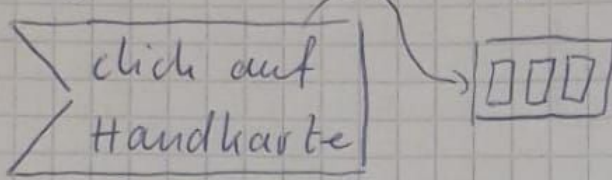 click auf
Handkarte